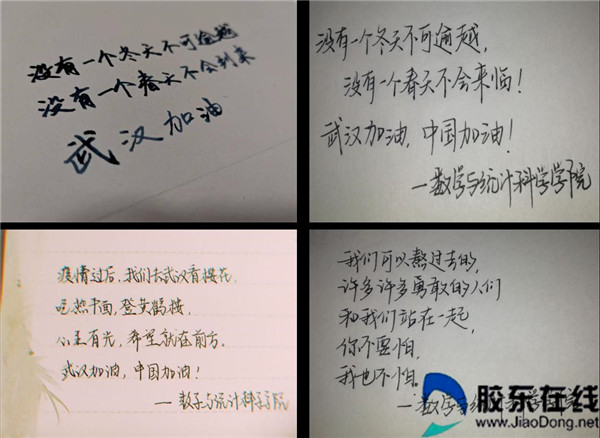 没有一个冬天不可逾越
没有一个春天不会到来
武汉加油
没有一个冬天不可逾越,
没有一个春天不会来临!
武汉加油,中国加油!
—数学与统计科学学院
疫情过后,我们去武汉看樱花,
吃热干面,登黄鹤楼,
心里有光,希望就在前方。
武汉加油,中国加油!
—数学与统计科学学院
我们可以熬过去的,
许多许多勇敢的人们
和我们站在一起,
你不要怕,
我也不怕。
—数学与统
胶东在线
www.JiaoDong.net